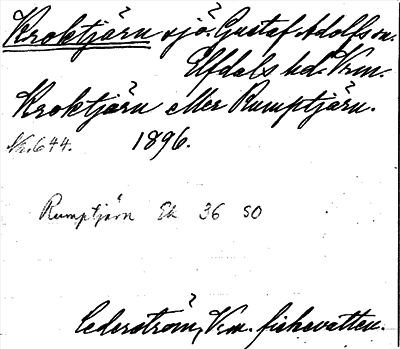 Kroktjärn sjö. Gustaf Adolfs sn.
Elfdals hd. Vrm.
Kroktjärn eller Rumptjärn.
Nr. 644. 1896.
Rumptjärn Ek 36 SO
Cederström, Vrm. fiskevatten.